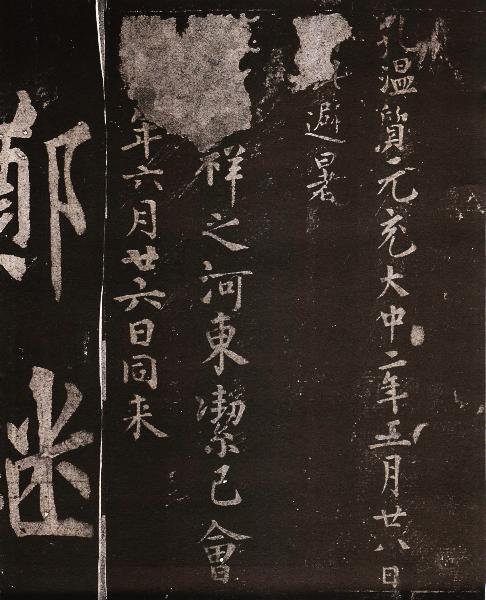 孔温質元充大中二年五月廿八日
避暑
祥之河東潔己會
年六月廿六日同来
鄭